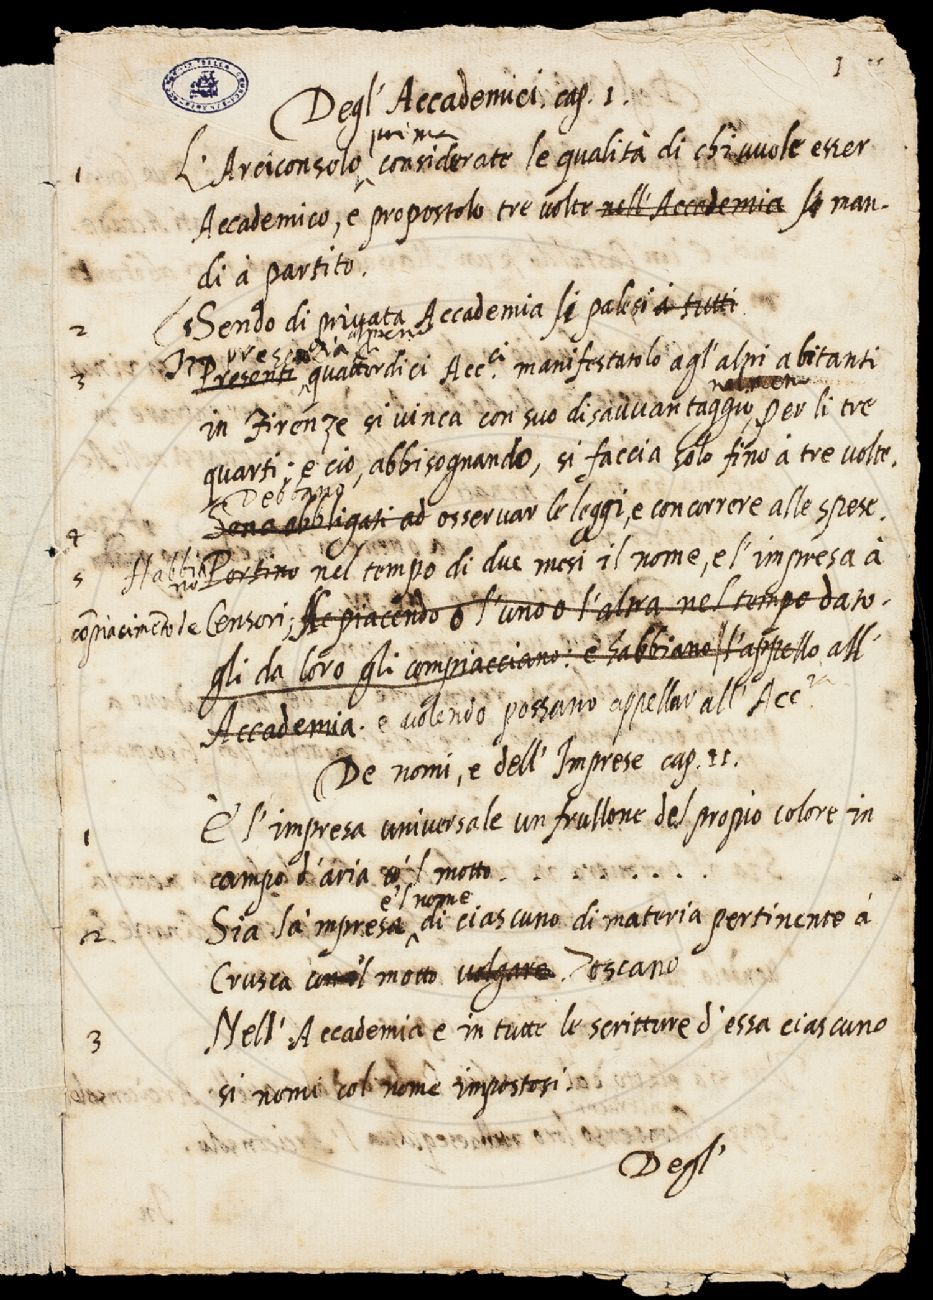 1
Degl' Accademici. cap. 1.
prima
1 L'Arciconsolo considerate le qualità di chi vuole esser
Accademico, e propostolo tre volte nell'Accademia si man-
di à partito.
2 Sendo di privata Accademia si palesi à tutti
In presenza almeno
3 Presenti quattordici Acc.ci manifestatolo agl'altri abitanti
in Firenze si vinca con suo disavvantaggio, per li tre
quarti; e ciò, abbisognando, si faccia solo fino à tre volte.
Debbano
4 Sono obbligati ad osservar le leggi, e concorrere alle spese.
5 Habbiano Portino nel tempo di due mesi il nome, e l'impresa à
compiacimento de Censori; piacendo o l'uno o l'altra nel tempo dato-
gli da loro gli compiacciano: e habbiano l'appello all'
Accademia. e volendo possano appellar all'Acc.ia
De nomi, e dell'Imprese cap. II.
1 È l'impresa universale un frullone del propio colore in
campo d'aria 'l motto . . . . . .
e'l nome
2 Sia la'mpresa di ciascuno di materia pertinente à
Crusca con'l motto volgare. Toscano
3 Nell'Accademia e in tutte le scritture d'essa ciascuno
si nomi col nome impostosi.
Degl'